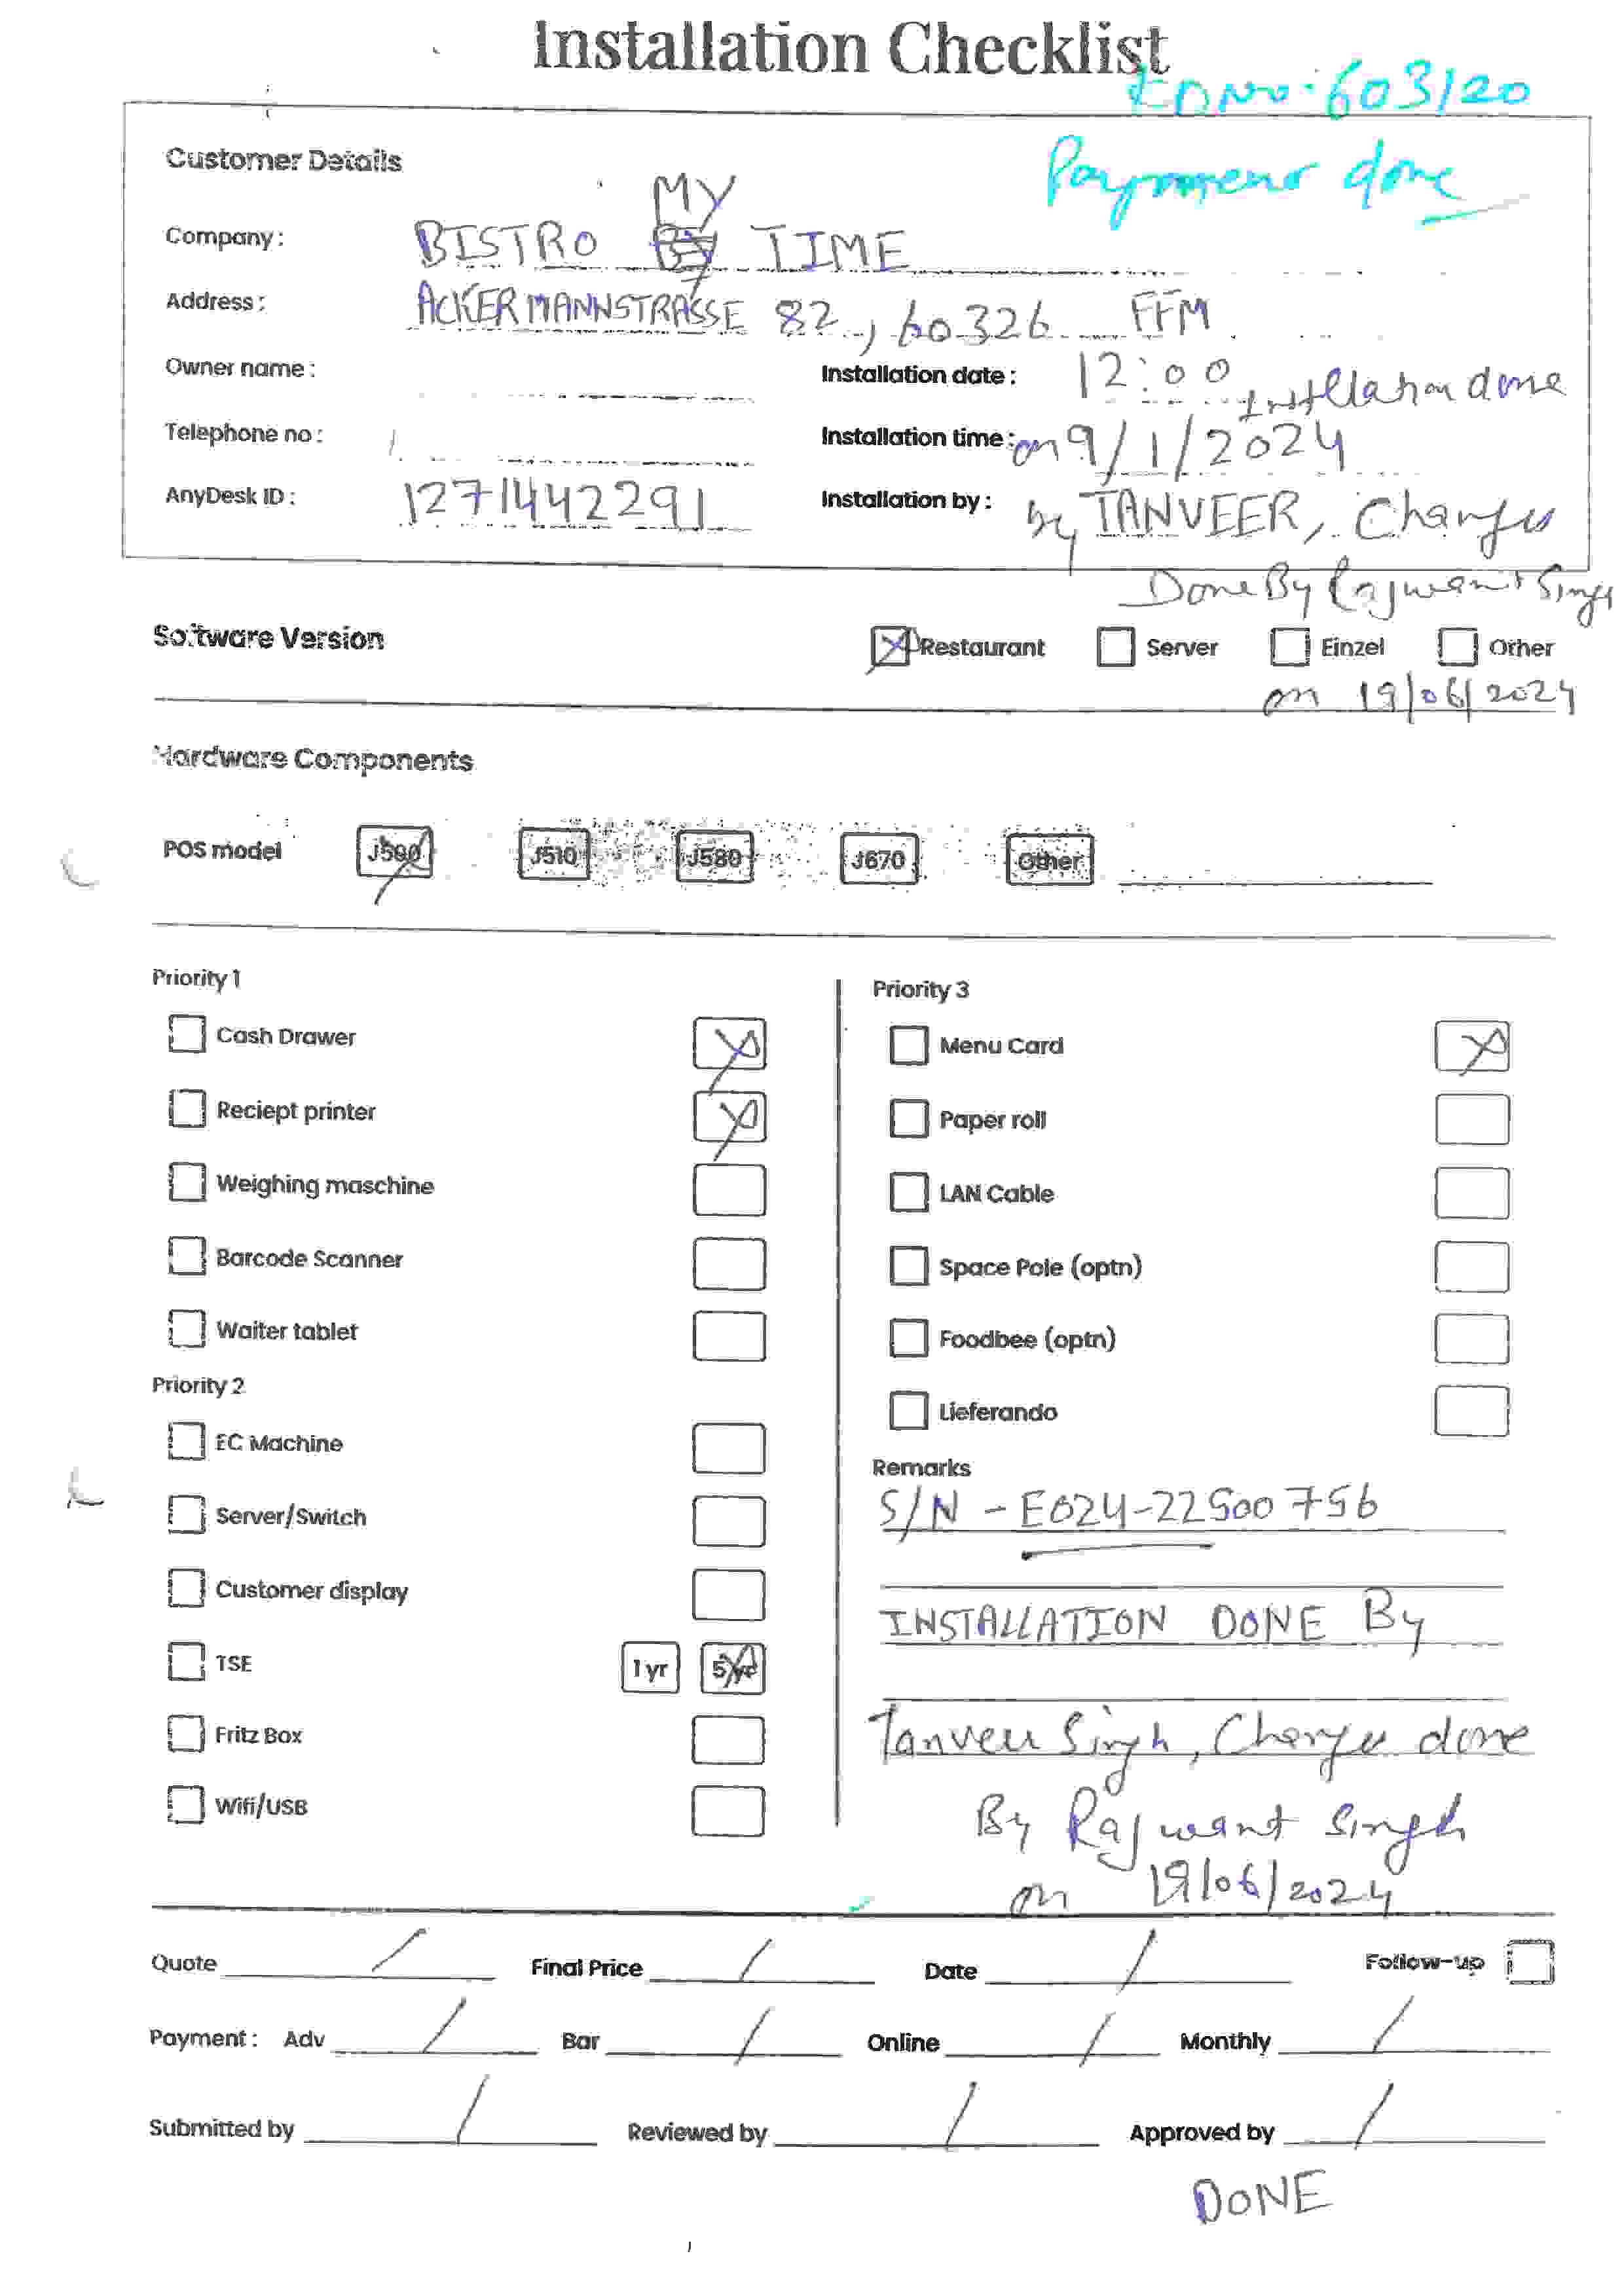 Installation Checklist
KDNr. 603120
Payment done
Customer Details
MY
Company: BISTRO TIME
Address: ACKERMANNSTRASSE 82, 60326 FFM
Owner name: Installation date: 12:00 Installation done
Telephone no: / Installation time: on 9/1/2024
AnyDesk ID: 1271442291 Installation by: by TANVEER, Changes
Done By Rajwant Singh
Software Version Restaurant Server Einzel Other
on 19/06/2024
Hardware Components
POS model J500 J510 J580 J670 Other
Priority 1
Cash Drawer
Reciept printer
Weighing maschine
Barcode Scanner
Waiter tablet
Priority 2
EC Machine
Server/Switch
Customer display
TSE 1 yr 5 yr
Fritz Box
Wifi/USB
Priority 3
Menu Card
Paper roll
LAN Cable
Space Pole (optn)
Foodbee (optn)
Lieferando
Remarks
S/N - E024-22500756
INSTALLATION DONE By
Tanveer Singh, Changes done
By Rajwant Singh
on 19/06/2024
Quote / Final Price / Date / Follow-up
Payment: Adv / Bar / Online / Monthly /
Submitted by / Reviewed by / Approved by /
DONE